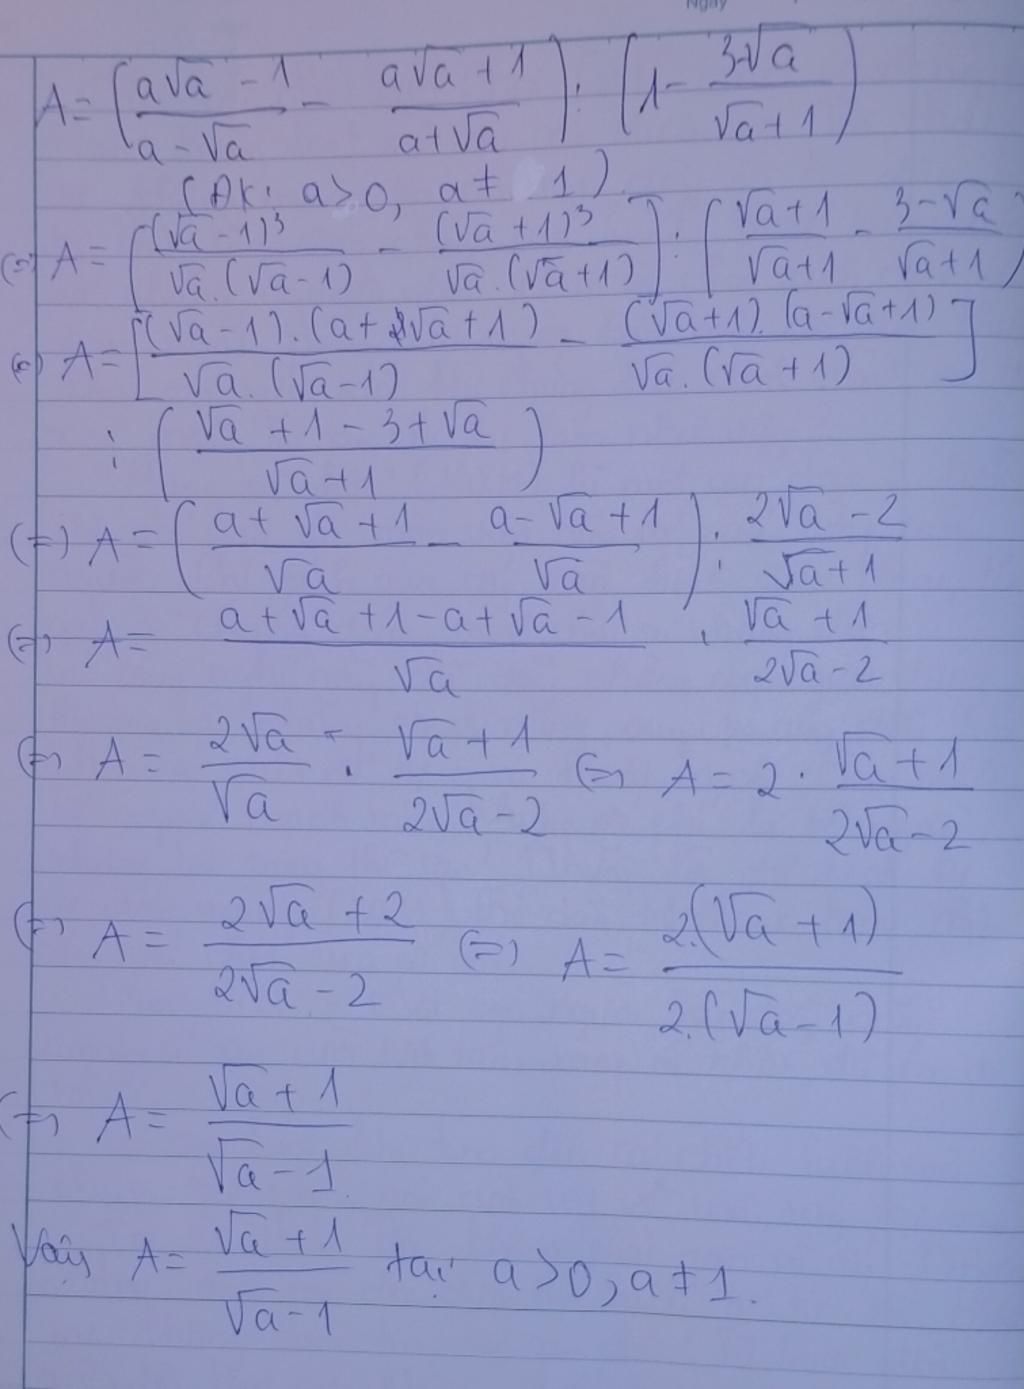 Ngày
A = (a√a - 1 / a - √a - a√a + 1 / a + √a) : (1 - 3-√a / √a + 1)
(ĐK: a > 0, a ≠ 1)
(=) A = [(√a - 1)³ / √a.(√a - 1) - (√a + 1)³ / √a.(√a + 1)] : [√a + 1 / √a + 1 - 3 - √a / √a + 1)
(=) A = [(√a - 1).(a + √a + 1) / √a.(√a - 1) - (√a + 1).(a - √a + 1) / √a.(√a + 1)]
: (√a + 1 - 3 + √a / √a + 1)
(=) A = (a + √a + 1 / √a - a - √a + 1 / √a) : 2√a - 2 / √a + 1
(=) A = a + √a + 1 - a + √a - 1 / √a . √a + 1 / 2√a - 2
(=) A = 2√a / √a . √a + 1 / 2√a - 2 (=) A = 2 . √a + 1 / 2√a - 2
(=) A = 2√a + 2 / 2√a - 2 (=) A = 2.(√a + 1) / 2.(√a - 1)
(=) A = √a + 1 / √a - 1
Vậy A = √a + 1 / √a - 1 tại a > 0, a ≠ 1.